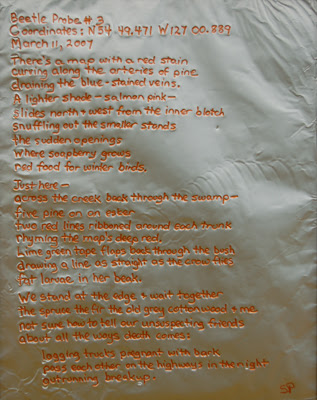 Beetle Probe # 3
Coordinates: N54 49.471 W127 00.889
March 11, 2007
There's a map with a red stain
curring along the arteries of pine
draining the blue-stained veins.
A lighter shade - salmon pink -
slides north + west from the inner blotch
snuffling out the smaller stands
the sudden openings
where soapberry grows
red food for winter birds.
Just here -
across the creek back through the swamp -
five pine on an esker
two red lines ribboned around each trunk
rhyming the map's deep red.
Lime green tape flaps back through the bush
drawing a line as straight as the crow flies
fat larvae in her beak.
We stand at the edge + wait together
the spruce the fir the old grey cottonwood + me
not sure how to tell our unsuspecting friends
about all the ways death comes:
logging trucks pregnant with bark
pass each other on the highways in the night
outrunning breakup.
SP